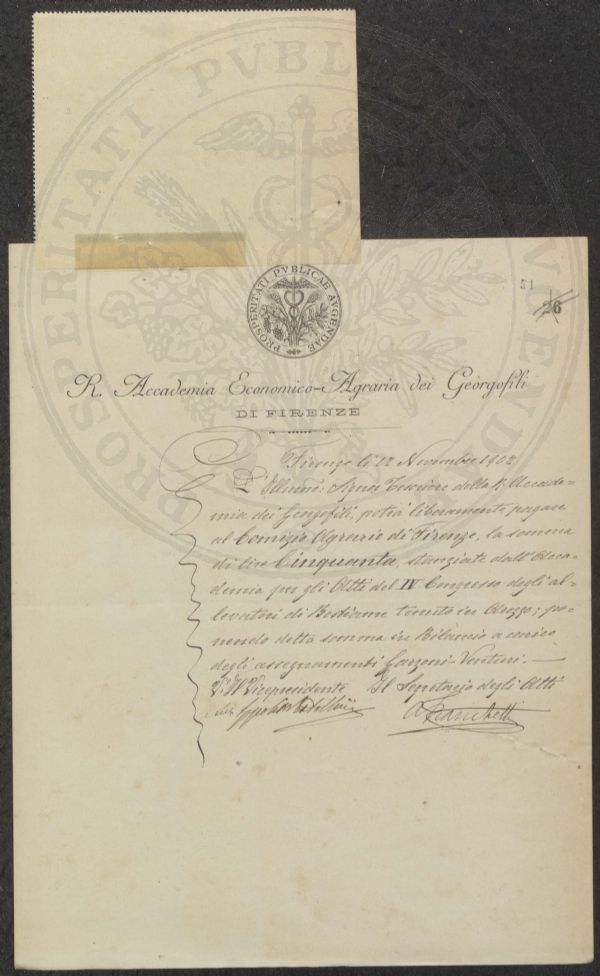 PROSPERITATI PVBLICAE AVGENDAE
PROSPERITATI PVBLICAE AVGENDAE
51
26
R. Accademia Economico-Agraria dei Georgofili
DI FIRENZE
Firenze li 12 Novembre 1902
L'Illmo: Signor Tesoriere della R. Accade-
mia dei Georgofili, potrà liberamente pagare
al Comizio Agrario di Firenze, la somma
di lire Cinquanta, stanziate dall'Acca-
demia per gli Atti del IV Congresso degli al-
levatori di Bestiame tenuto in Arezzo; po-
nendo detta somma in Bilancio a carico
degli assegnamenti Garzoni-Venturi. —
V. Il Vicepresidente Il Segretario degli Atti